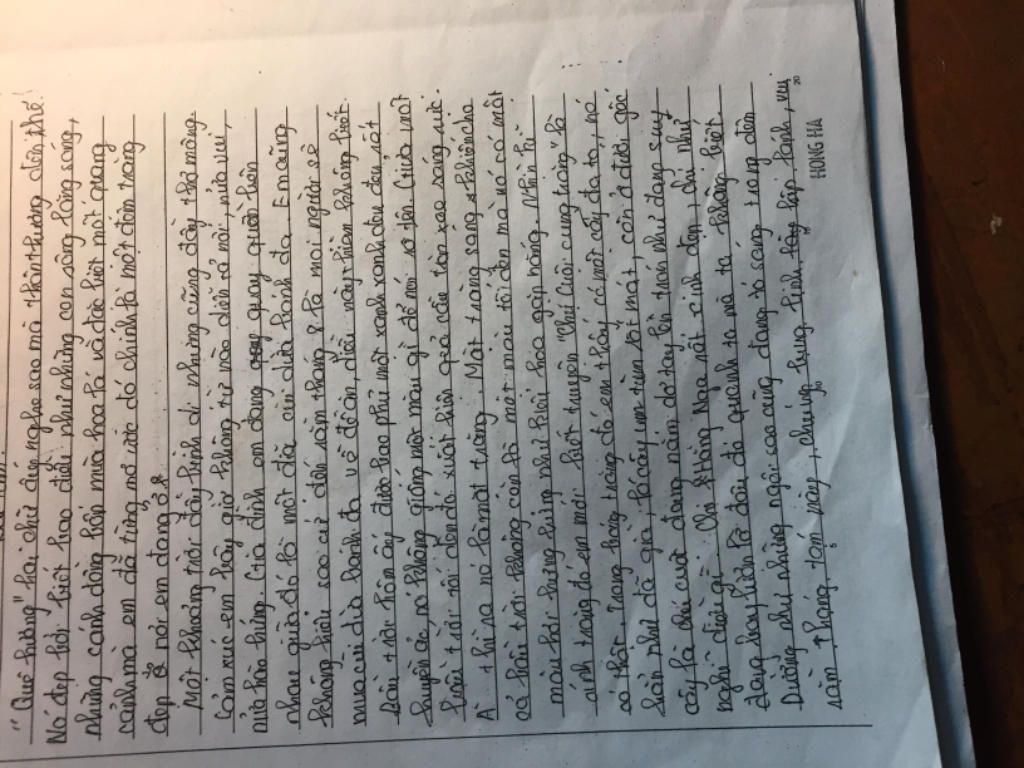 "Quê hương" hai chữ ấy nghe sao mà thân thương đến thế!
Nó đẹp hơi biết bao điều như những con sông lăng sóng,
những cánh đồng hợp mùa hoa lá và đặc biệt một quang
cảnh mà em đã từng mơ ước đó chính là một đêm trăng
đẹp ở nơi em đang ở.
Một khoảng trời đầy bình dị nhưng cũng đầy thơ mộng.
Cảm xúc em bây giờ không từ nào diễn tả nổi, nửa vui,
nửa hào hứng. Gia đình em đang quay quần bên
nhau, giữa đó là một dĩa củi dừa bánh đa. Em cũng
không hiểu sao cứ đến rằm tháng 8 là mọi người sẽ
mua củi dừa bánh đa về để ăn, điều này thì em không biết.
Bầu trời hôm ấy được bao phủ một xanh xanh đen đen rất
huyền ác, nó không giống một màu gì để nói rõ tên. Cứa một
bầu trời rồi đêm đó xuất hiện quả cầu tròn xoe sáng rực.
À thì ra nó là mặt trăng. Mặt trăng sáng khiến cho
cả bầu trời không còn là một màu tối đen mà nó có một
màu hơi hửng hửng như khoai hoa gặp nắng. Nhìn lên
ánh trăng đó em mới biết truyện "Chú Cuội cung trăng" là
có thật, trong bóng trăng đó em thấy có một cây đa to, nó
gần như đã già, lá cây um tùm rất mát, còn ở dưới gốc
cây là chú cuội đang nằm dơ tay lên trán như đang suy
nghĩ điều gì. Chị Hằng Nga rất xinh đẹp, chị như
đang bay lượn ở đâu đó quanh ta mà ta không biết.
Dường như những ngôi sao cũng đang tỏ sáng trong đêm
rằm, hóng tám này, chúng tụng tinh tấp tấp lánh, vui
HONG HA